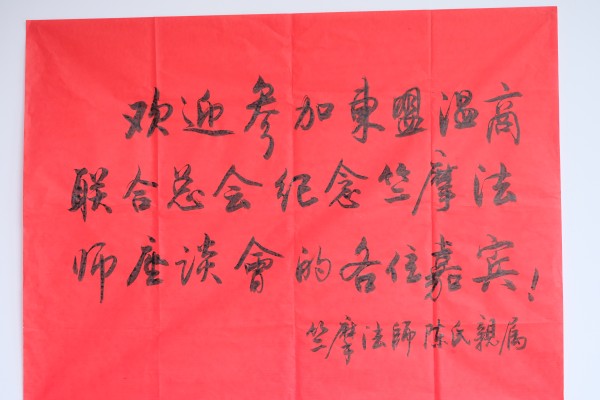 欢迎参加東盟温商
联合总会纪念竺摩法
师座谈會的各位嘉宾！
竺摩法師陈氏親属